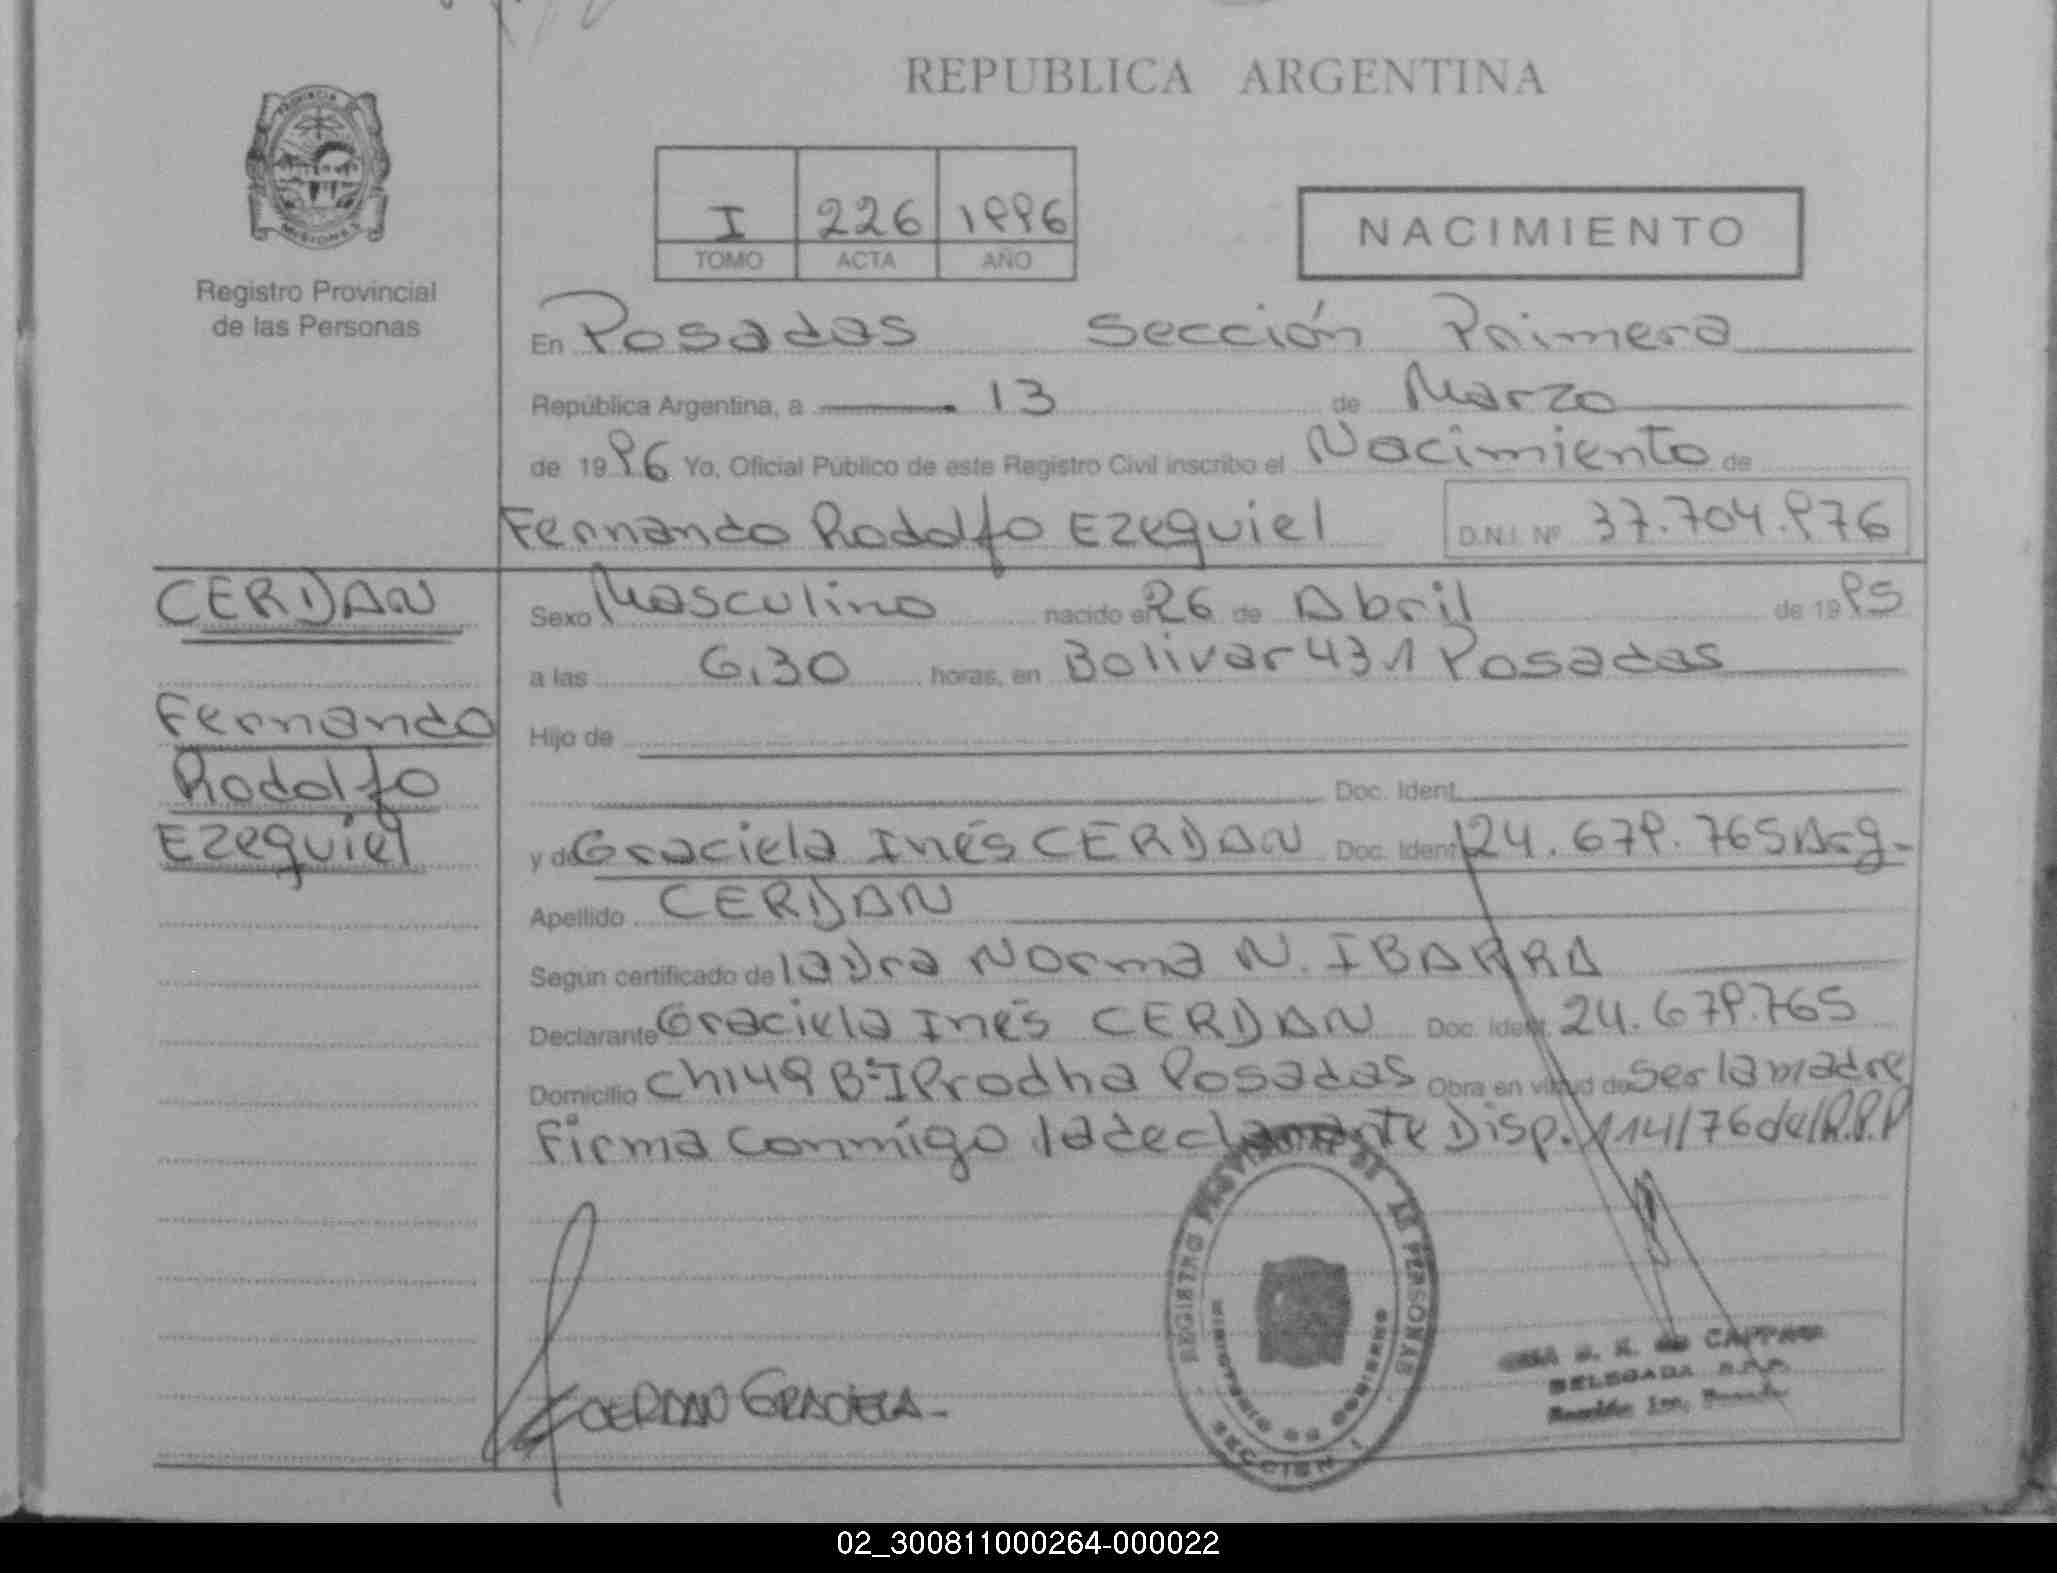 REPUBLICA ARGENTINA
PROVINCIA DE
MISIONES
Registro Provincial
de las Personas
I 226 1996
TOMO ACTA AÑO
NACIMIENTO
En Posadas Sección Primera
República Argentina, a 13 de Marzo
de 1996 Yo, Oficial Público de este Registro Civil inscribo el Nacimiento de
Fernando Rodolfo Ezequiel D.N.I. Nº 37.704.976
CERDAN
Fernando
Rodolfo
Ezequiel
Sexo Masculino nacido el 26 de Abril de 1995
a las 6,30 horas, en Bolivar 431 Posadas
Hijo de
Doc. Ident.
y de Graciela Inés CERDAN Doc. Ident. 24.679.765 Arg.
Apellido CERDAN
Según certificado de la Dra Norma N. IBARRA
Declarante Graciela Inés CERDAN Doc. Ident. 24.679.765
Domicilio Ch149 Bº IProdha Posadas Obra en virtud de ser la madre
Firma conmigo la declarante Disp. 114/76 del R.P.P
REGISTRO PROVINCIAL DE LAS PERSONAS
MINISTERIO DE GOBIERNO
SECCION 1
CERDAN GRACIELA
DELEGADA R.P.P.
02_300811000264-000022